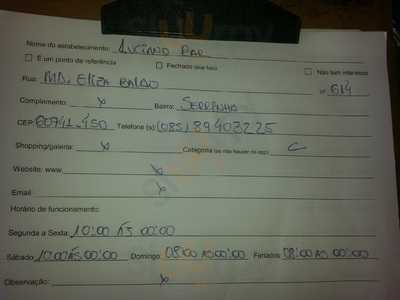 Nome do estabelecimento: LUCIANO BAR
É um ponto de referência Fechado (sua foto) Não tem interesse
Rua: MD. ELIZA BALDO nº 614
Complemento: x Bairro: SERRINHA
CEP: 60741-450 Telefone (s): (085) 89403225
Shopping/galeria: x Categoria (se não houver no app): C
Website: www. x
Email: x
Horário de funcionamento:
Segunda a Sexta: 10:00 ÀS 00:00
Sábado: 10:00 ÀS 00:00 Domingo: 08:00 ÀS 00:00 Feriados: 08:00 ÀS 00:00
Observação: x